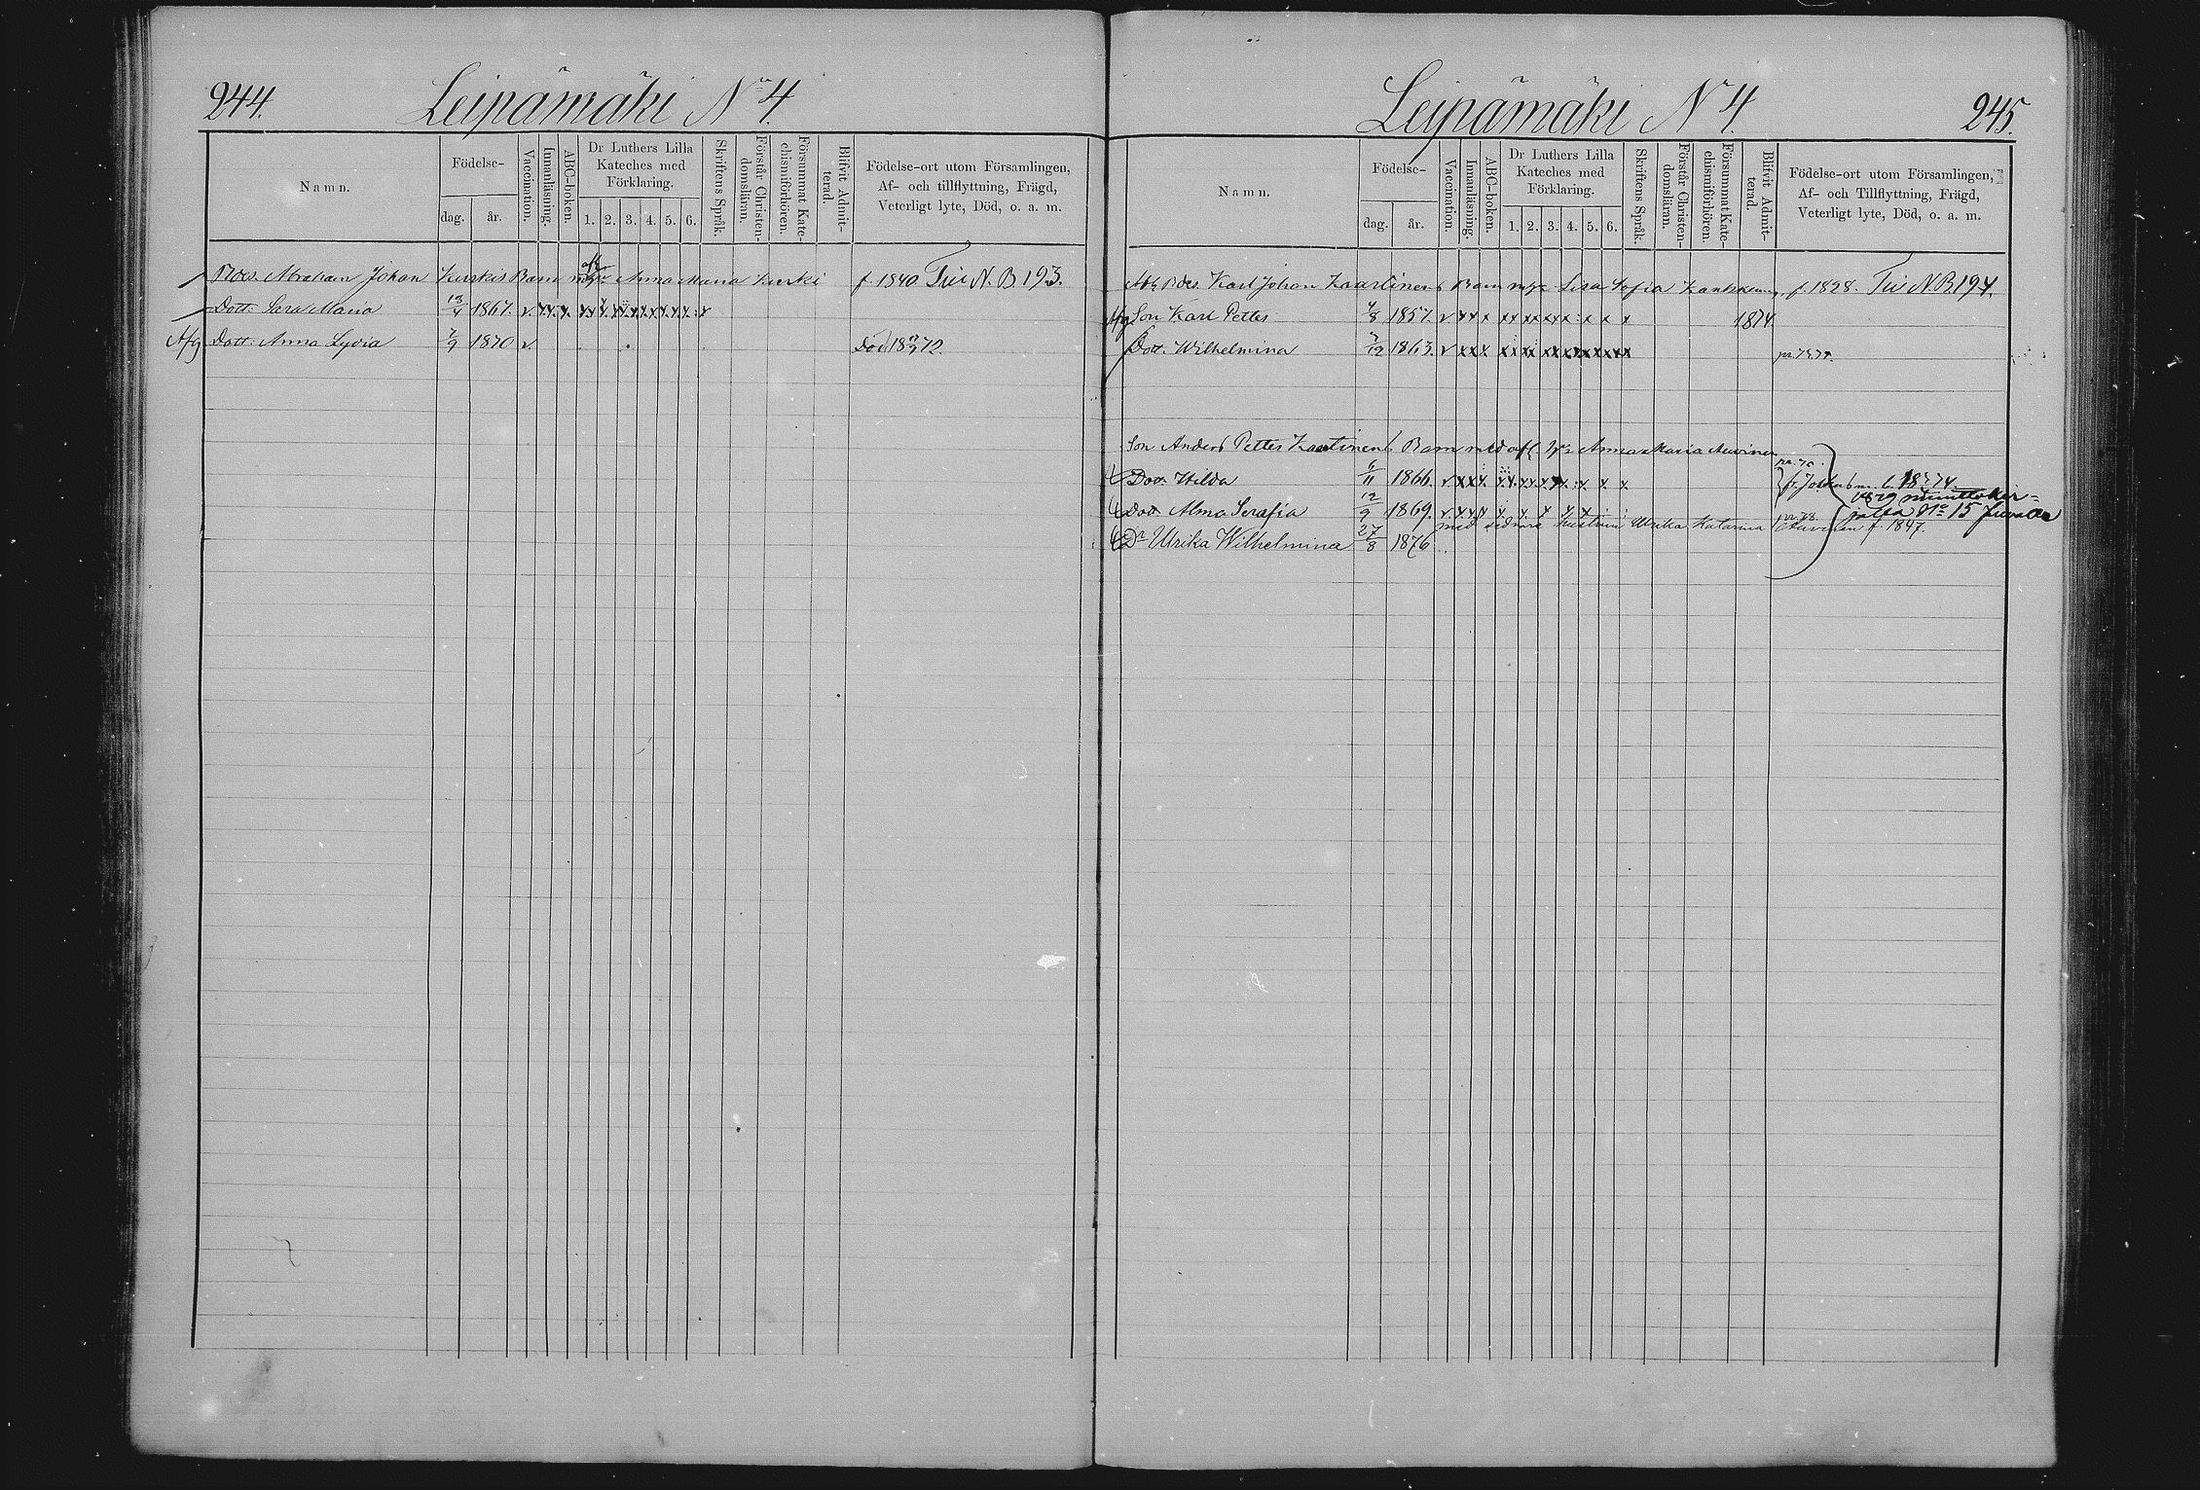 244.
Leipämäki No 4.
Namn.
Födelse-
dag.
år.
Vaccination.
Innanläsning.
ABC-boken.
Dr Luthers Lilla
Kateches med
Förklaring.
1. 2. 3. 4. 5. 6.
Skriftens Språk.
Förstår Christen-
domsläran.
Försummat Kate-
chismiförhören.
Blifvit Admit-
terad.
Födelse-ort utom Församlingen,
Af- och tillflyttning, Frägd,
Veterligt lyte, Död, o. a. m.
Abraham Johan Kurkis Barn afl. Anna Maria Kurki f. 1840. N. B 193.
Dott. Sara Maria 13/4 1867. v. xx x. x x x x x x x x x x x
Afg Dott. Anna Lydia 7/9 1870 v. Död 1872.
Leipämäki No 4.
245.
Namn.
Födelse-
dag.
år.
Vaccination.
Innanläsning.
ABC-boken.
Dr Luthers Lilla
Kateches med
Förklaring.
1. 2. 3. 4. 5. 6.
Skriftens Språk.
Förstår Christen-
domsläran.
Försummat Kate-
chismiförhören.
Blifvit Admit-
terad.
Födelse-ort utom Församlingen,
Af- och Tillflyttning, Frägd,
Veterligt lyte, Död, o. a. m.
Karl Johan Kaartinens Barn Lisa Sofia f. 1838. N. B 194.
Afg Son Karl Petter 4/8 1857. v xx x xx xx xx x x x 1874
Dott. Wilhelmina 1863. v xx x xx xx xx xx xx xx
Son Anders Petter Kaartinens Barn med afl. Anna Maria Auvinen
Dott. Hilda 6/11 1866. v x x x. x x x x x x x x
Dott Alma Serafia 12/9 1869. v x x x x. x. x x x
med sednare hustrun Ulrika Katarina Auvinen f. 1847.
No 15
Dr Ulrika Wilhelmina 27/8 1876